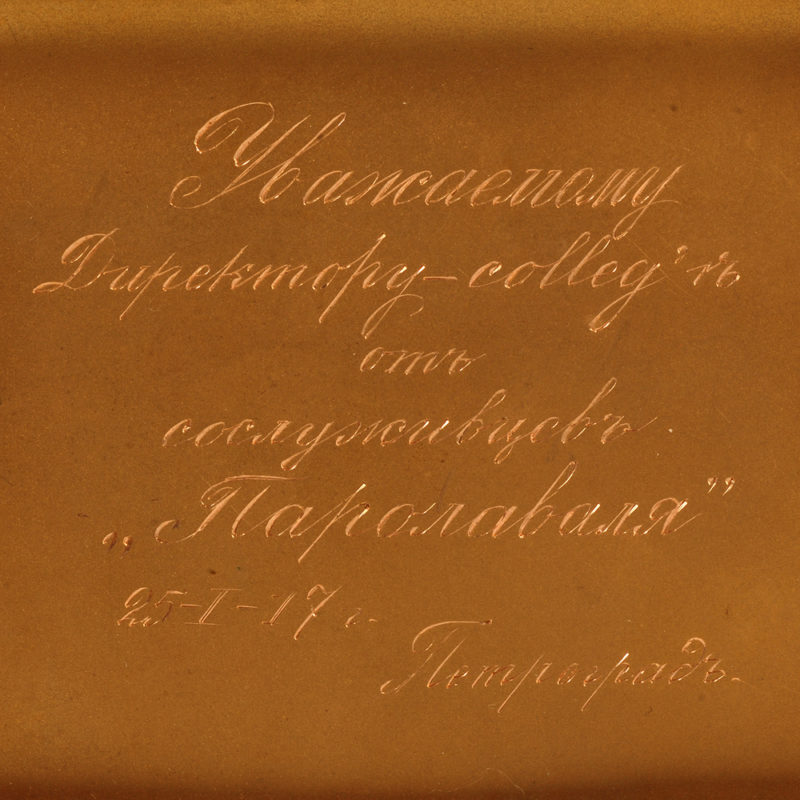 Уважаемому
Директору-colleg'ѣ
отъ
сослуживцевъ
„Паролаваля”
25-I-17 г.
Петроградъ.